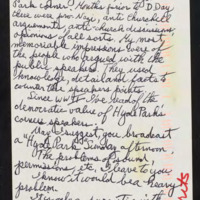 Park corner! Months prior to D Day
there were pro Nazi, anti Churchill
arguments, anti-church discussions,
opinions of all sorts. My most
memorable impressions were of
the people who argued with the
public speakers. They used
knowledge, detailed facts to
counter the speakers points.
Since WWII I've heard of the
democratic value of Hyde Park's
corner speakers.
May I suggest you broadcast
a "Hyde Park" Sunday afternoon.
The problems of sound,
permissions, etc., I leave to you
I know it would be a heavy
problem.